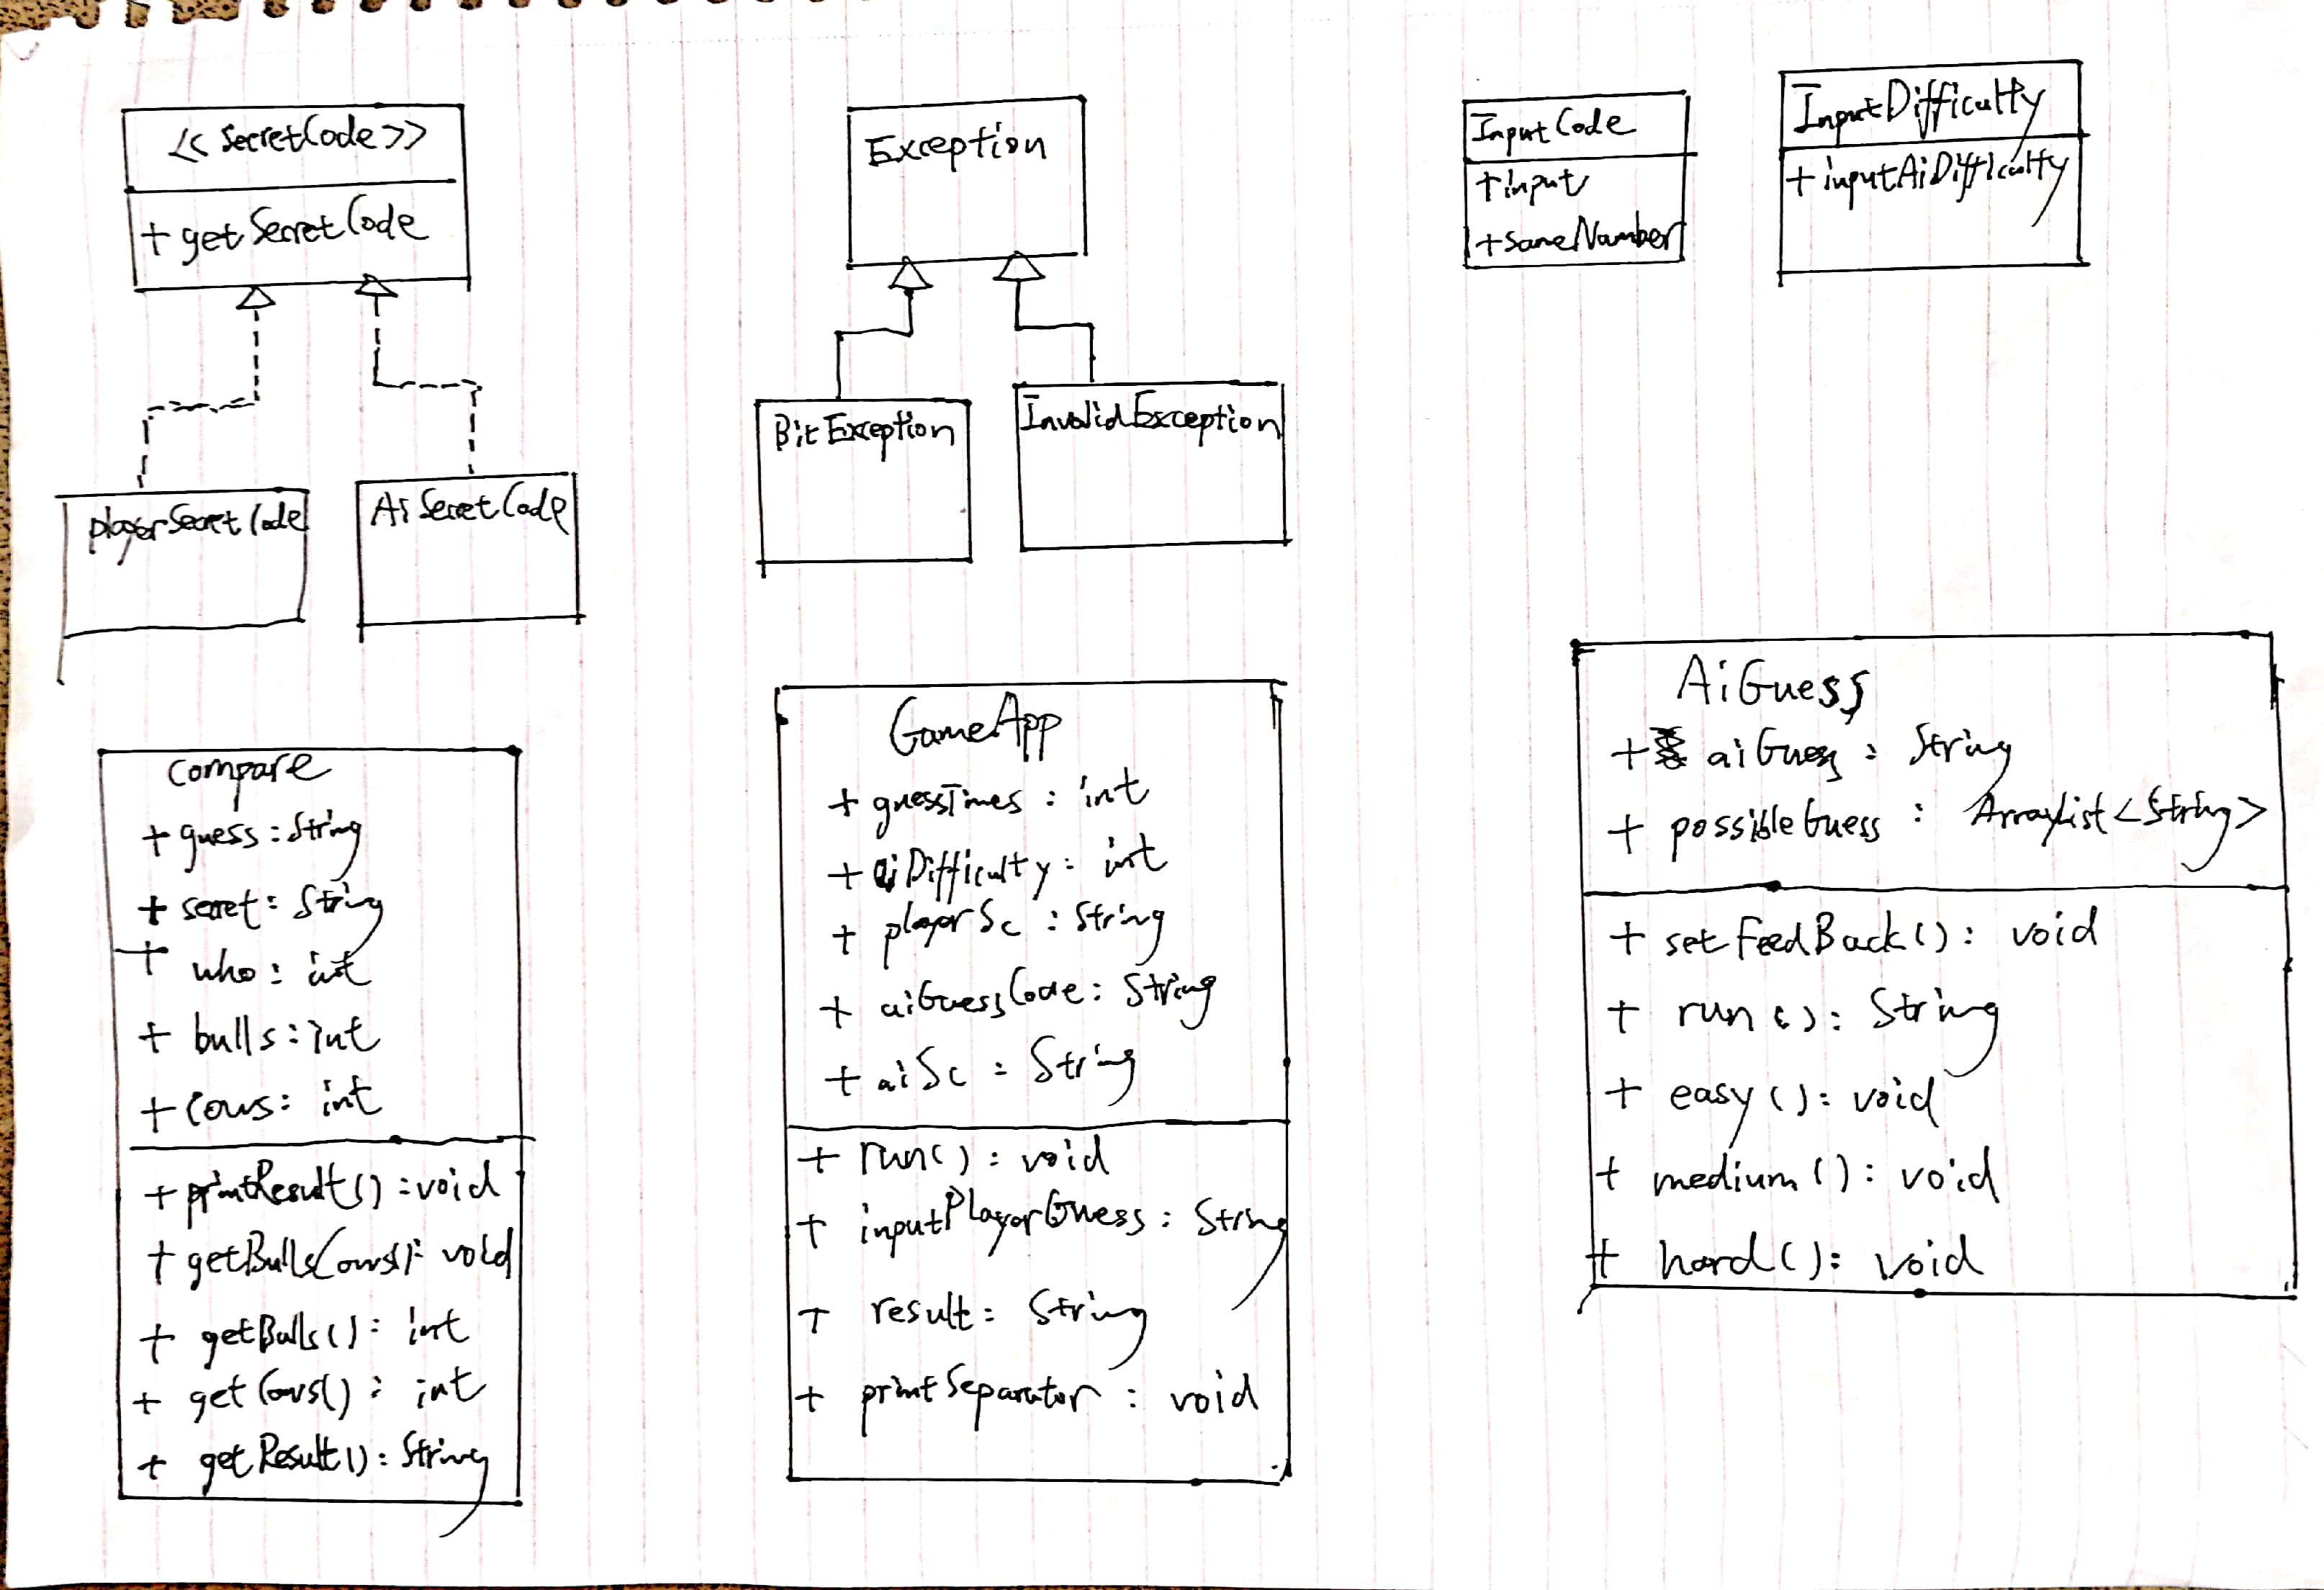 <<SecretCode>>
+ getSecretCode
playorSecretCode
AiSecretCode
Exception
BitException
InvalidException
InputCode
+input
+sameNumber
InputDifficulty
+inputAiDifficulty
Compare
+ guess:String
+ secret: String
+ who: int
+ bulls:int
+ Cows: int
+ printResult():void
+ getBullsCows(): void
+ getBulls(): int
+ getCows(): int
+ getResult(): String
GameApp
+ guessTimes: int
+ aiDifficulty: int
+ playorSc : String
+ aiGuessCode: String
+ aiSc : String
+ run(): void
+ inputPlayorGuess: String
+ result: String
+ printSeparator: void
AiGuess
+ aiGuess: String
+ possibleGuess: ArrayList<String>
+ setFeedBack(): void
+ run(): String
+ easy(): void
+ medium(): void
+ hard(): void